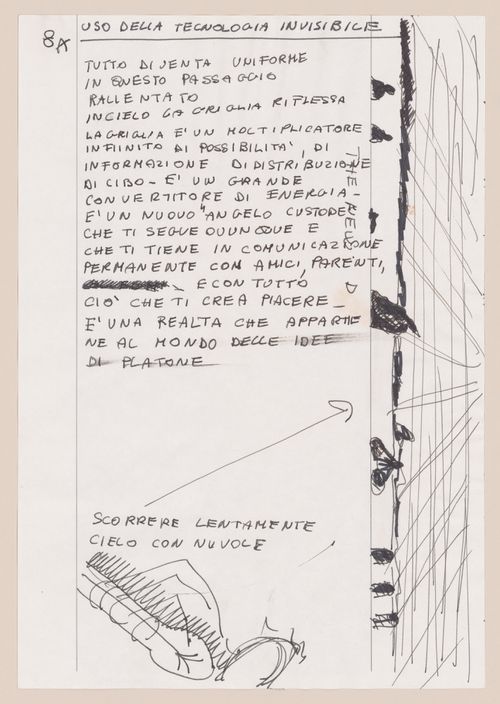 8A
USO DELLA TECNOLOGIA INVISIBILE
TUTTO DIVENTA UNIFORME
IN QUESTO PASSAGGIO
RALLENTATO
IN CIELO LA GRIGLIA RIFLESSA
LA GRIGLIA E' UN MOLTIPLICATORE
INFINITO DI POSSIBILITA', DI
INFORMAZIONE DI DISTRIBUZIONE
DI CIBO - E' UN GRANDE
CONVERTITORE DI ENERGIA
E' UN NUOVO "ANGELO CUSTODE
CHE TI SEGUE OVUNQUE E
CHE TI TIENE IN COMUNICAZIONE
PERMANENTE CON AMICI, PARENTI,
E CON TUTTO
CIO' CHE TI CREA PIACERE -
E' UNA REALTA CHE APPARTIE
NE AL MONDO DELLE IDEE
DI PLATONE
SCORRERE LENTAMENTE
CIELO CON NUVOLE